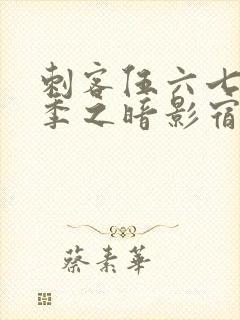 刺客伍六七
季之暗影宿
蔡素华